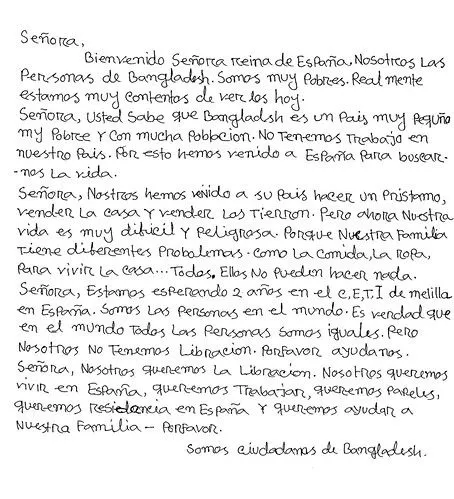 Señora,
Bienvenido Señora reina de España, Nosotros Las
Personas de Bangladesh. Somos muy Pobres. Real mente
estamos muy contentos de ver los hoy.
Señora, Usted Sabe que Bangladsh es un Pais muy Pequño
my Pobree y Con mucha Poblacion. No Tenemos Trabajo en
nuestro Pais. Por esto hemos venido a España Para buscar-
-nos La vida.
Señora, Nostros hemos venido a su Pais hacer un Pristamo,
vender La casa y vender Los Tierron. Pero ahora Nuestra
vida es muy dificil y Peligrosa. Porque Nuestra Familia
Tiene diferentes Probalemas. como La comida, La ropa,
Para vivir La casa... Todos. Ellos No Pueden hacer nada.
Señora, Estamos esperando 2 años en el C,E,T,I de melilla
en España. Somos Las Personas en el mundo. Es verdad que
en el mundo Todos Las Personas Somos iguales. Pero
Nosotros No Tenemos Libracion. Porfavor ayudanos.
Señora, Nosotros queremos La Libracion. Nosotros queremos
vivir en España, queremos Trabajar, queremos Pareles,
queremos residencia en España y queremos ayudar a
Nuestra Familia – Porfavor.
Somos ciudadanas de Bangladesh.